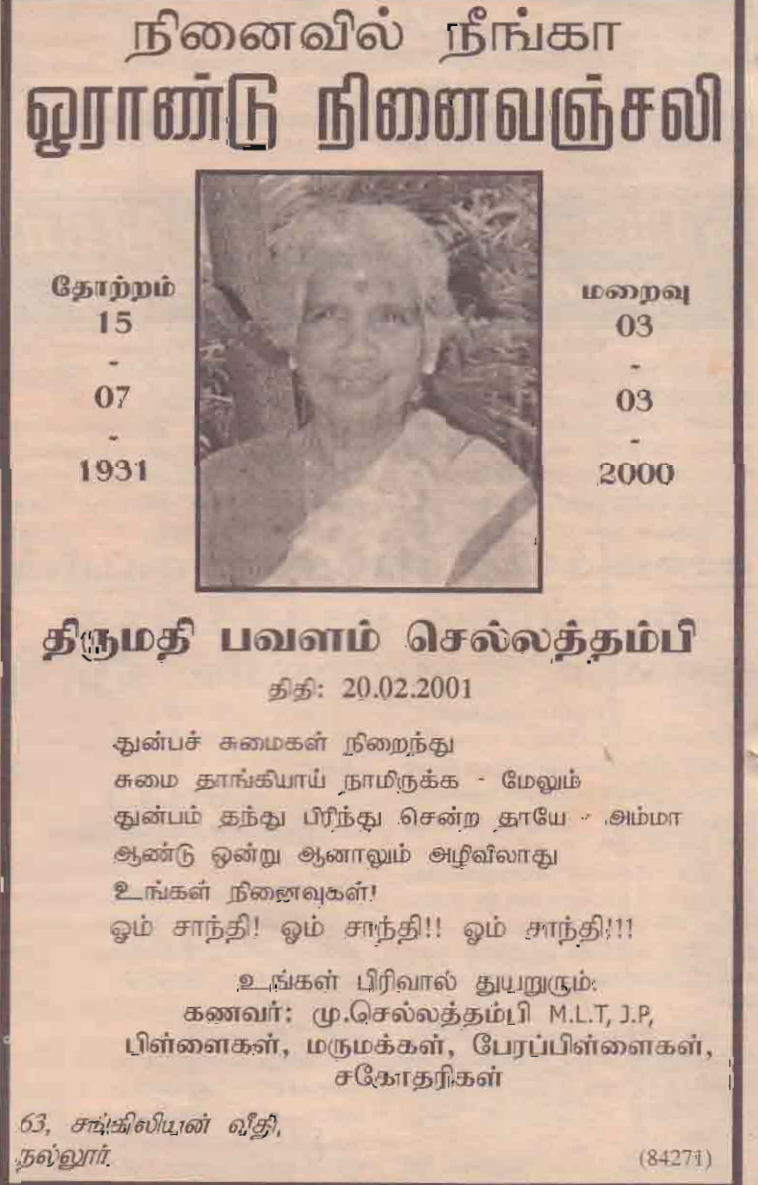 நினைவில் நீங்கா
ஓராண்டு நினைவஞ்சலி
தோற்றம்
15
-
07
-
1931
மறைவு
03
-
03
-
2000
திருமதி பவளம் செல்லத்தம்பி
திதி: 20.02.2001
துன்பச் சுமைகள் நிறைந்து
சுமை தாங்கியாய் நாமிருக்க - மேலும்
துன்பம் தந்து பிரிந்து சென்ற தாயே - அம்மா
ஆண்டு ஒன்று ஆனாலும் அழிவிலாது
உங்கள் நினைவுகள்!
ஓம் சாந்தி! ஓம் சாந்தி!! ஓம் சாந்தி!!!
உங்கள் பிரிவால் துயறுரும்:
கணவர்: மு.செல்லத்தம்பி M.L.T, J.P,
பிள்ளைகள், மருமக்கள், பேரப்பிள்ளைகள்,
சகோதரிகள்
63, சங்கிலியன் வீதி,
நல்லூர்.
(84271)